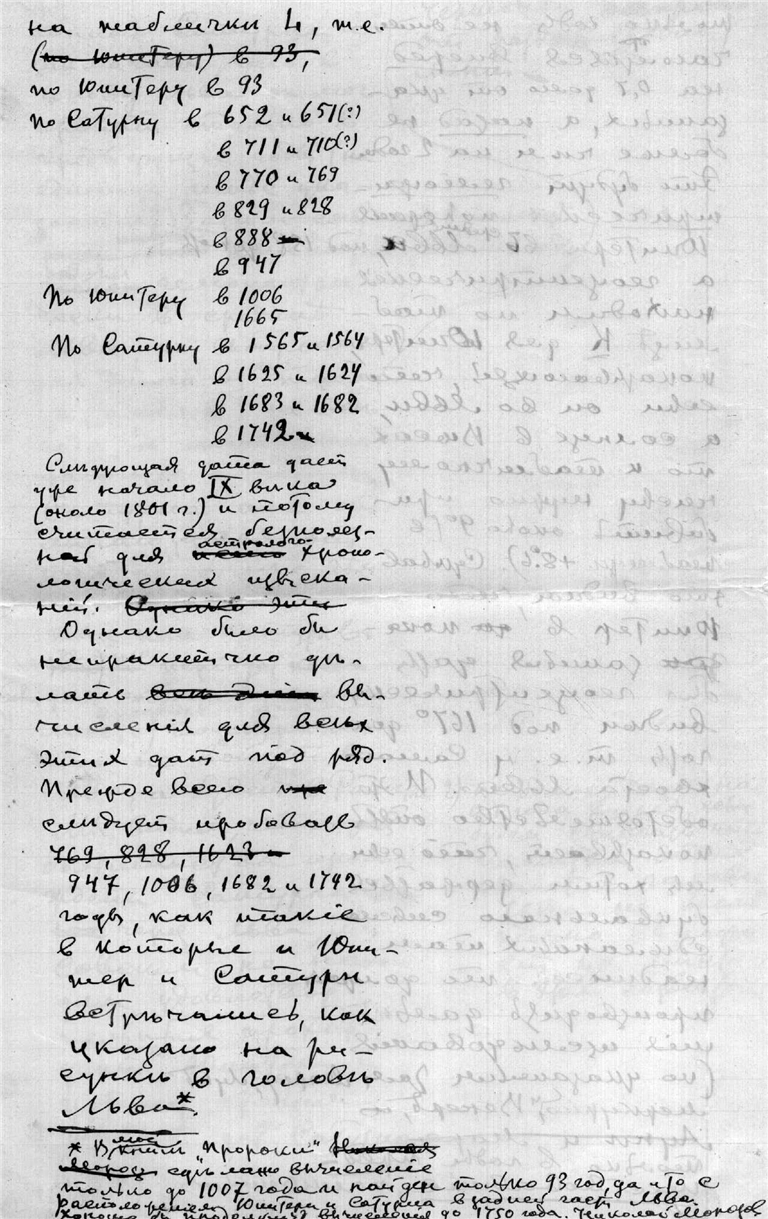 на табличкѣ 4, т.е.
(по Юпитеру) в 93,
по Юпитеру в 93
по Сатурну в 652 и 651(?)
в 711 и 710(?)
в 770 и 769
в 829 и 828
в 888
в 947
По Юпитеру в 1006
1665
По Сатурну в 1565 и 1564
в 1625 и 1624
в 1683 и 1682
в 1742
Слѣдующая дата дает
уже начало IX вѣка
(около 1801 г.) и потому
считается безполез-
ной для астролого-
хроно-
логических изыска-
ній. Однако эти
Однако было бы
непрактично дѣ-
лать вы-
численія для всѣх
этих дат под ряд.
Прежде всего
слѣдует пробовать
769, 828, 1623
947, 1006, 1682 и 1742
годы, как такіе
в которые и Юпи-
тер и Сатурн
встрѣчались, как
указано на ри-
сункѣ в головѣ
Льва*.
* В моей книгѣ "Пророки" Николая
Морозова сдѣлано вычисленіе
только до 1007 года и найден только 93 год, да и то с
расположеніем Юпитера и Сатурна в задней части Льва.
до 1750 года. Николай Морозов